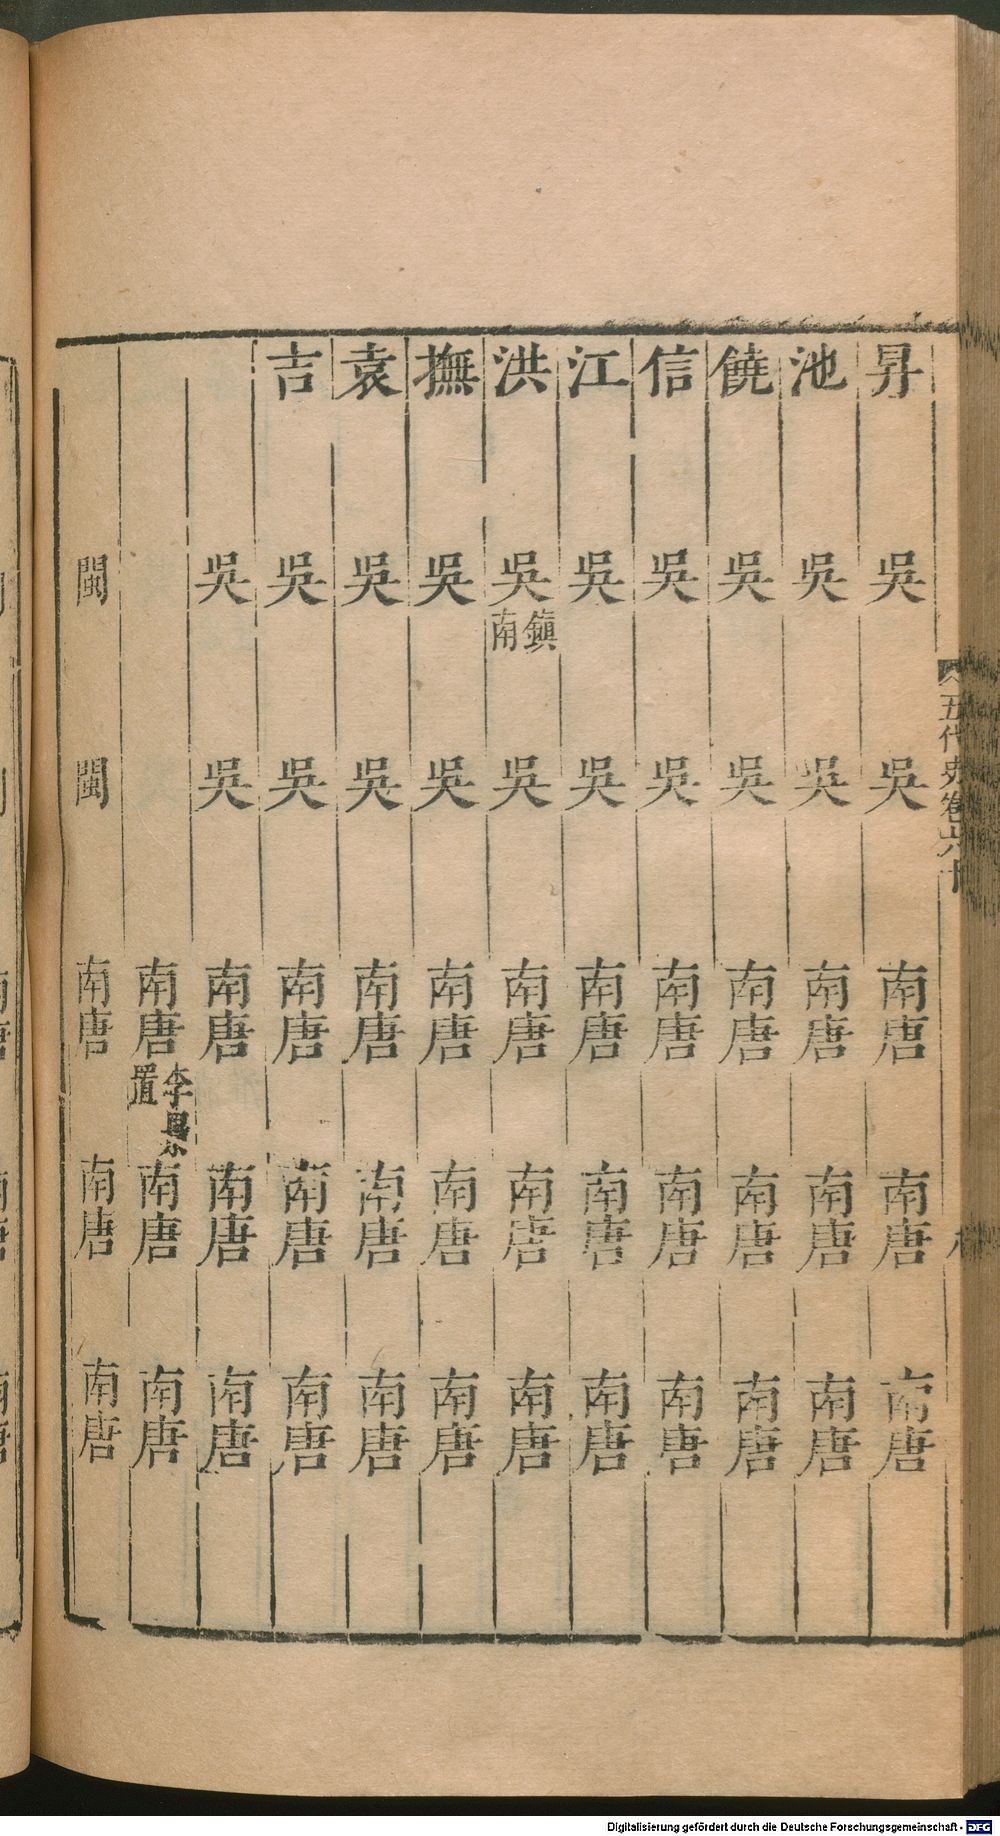 五代史卷六十
昇 吳 吳 南唐 南唐 南唐
池 吳 吳 南唐 南唐 南唐
饒 吳 吳 南唐 南唐 南唐
信 吳 吳 南唐 南唐 南唐
江 吳 吳 南唐 南唐 南唐
洪 吳 鎮南 吳 南唐 南唐 南唐
撫 吳 吳 南唐 南唐 南唐
袁 吳 吳 南唐 南唐 南唐
吉 吳 吳 南唐 南唐 南唐
吳 吳 南唐 南唐 南唐
南唐 李景置 南唐 南唐
閩 閩 南唐 南唐 南唐
Digitalisierung gefördert durch die Deutsche Forschungsgemeinschaft - DFG